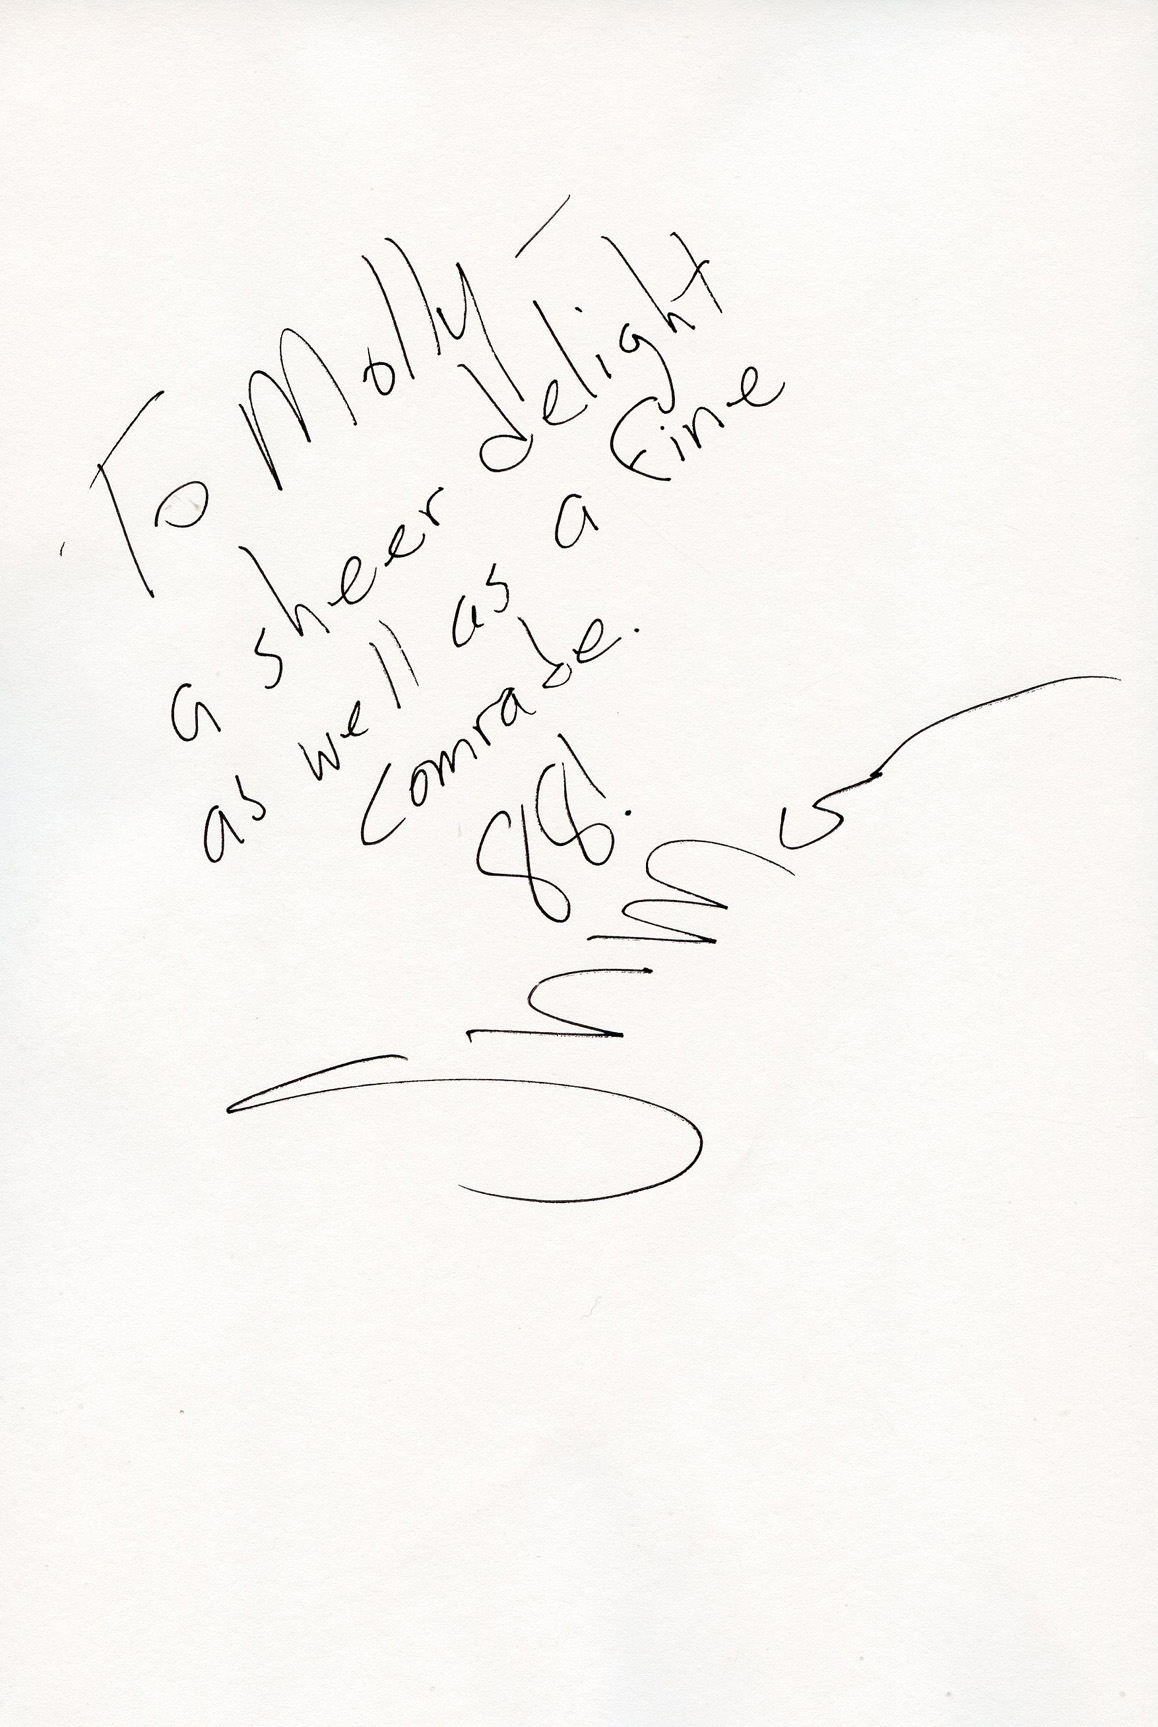 To Molly –
a sheer delight
as well as a fine
comrade.
88!